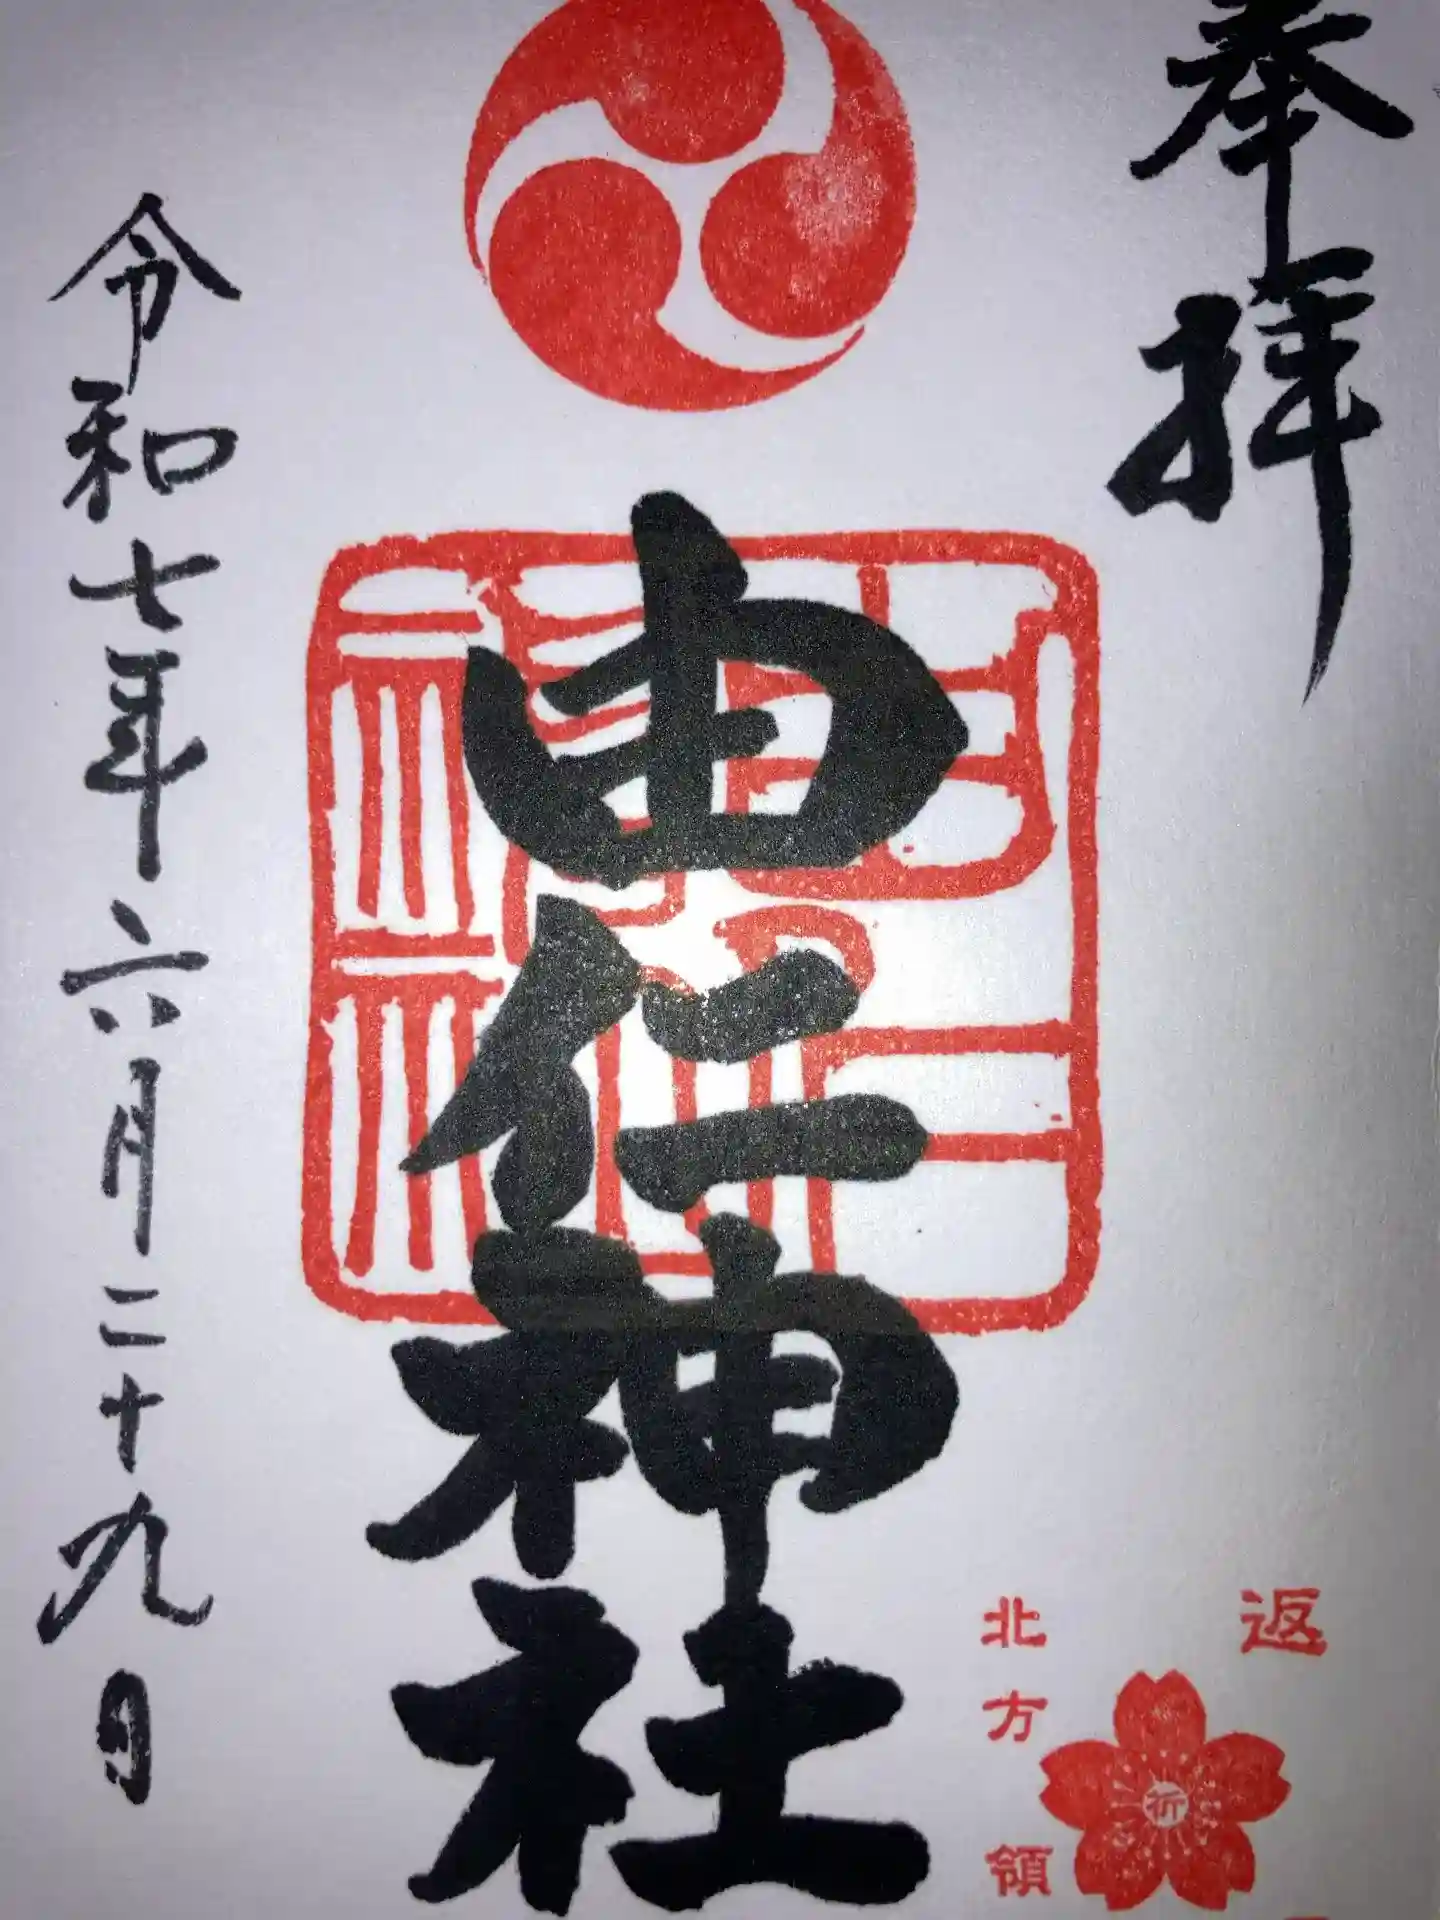 奉拝
返
北方領
祈
由仁神社
令和七年六月二十九日